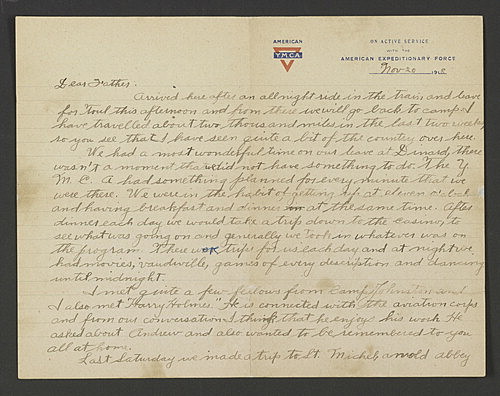 AMERICAN
YMCA
ON ACTIVE SERVICE
WITH THE
AMERICAN EXPEDITIONARY FORCE
Nov-20 1918
Dear Father:
Arrived here after an all night ride in the train, and leave
for Toul this afternoon and from there we will go back to camp. I
have travelled about two thousand miles in the last two weeks
so you see that I have seen quite a bit of the country over here.
We had a most wonderful time on our leave at Dinard, there
wasn't a moment that we did not have something to do. The Y.
M. C. A had something planned for every minute that we
were there. We were in the habit of getting up at eleven o'clock
and having breakfast and dinner at the same time. After
dinner each day we would take a trip down to the casino, to
see what was going on and generally we took in whatever was on
the program. There were trips for us each day and at night we
had movies, vaudeville, games of every description and dancing
until midnight.
I met quite a few fellows from Camp Johnston and
I also met "Harry Holmes." He is connected with the aviation corps
and from our conversation I think that he enjoys his work. He
asked about Andrew and also wanted to be remembered to you
all at home.
Last Saturday we made a trip to St. Michel, an old abbey